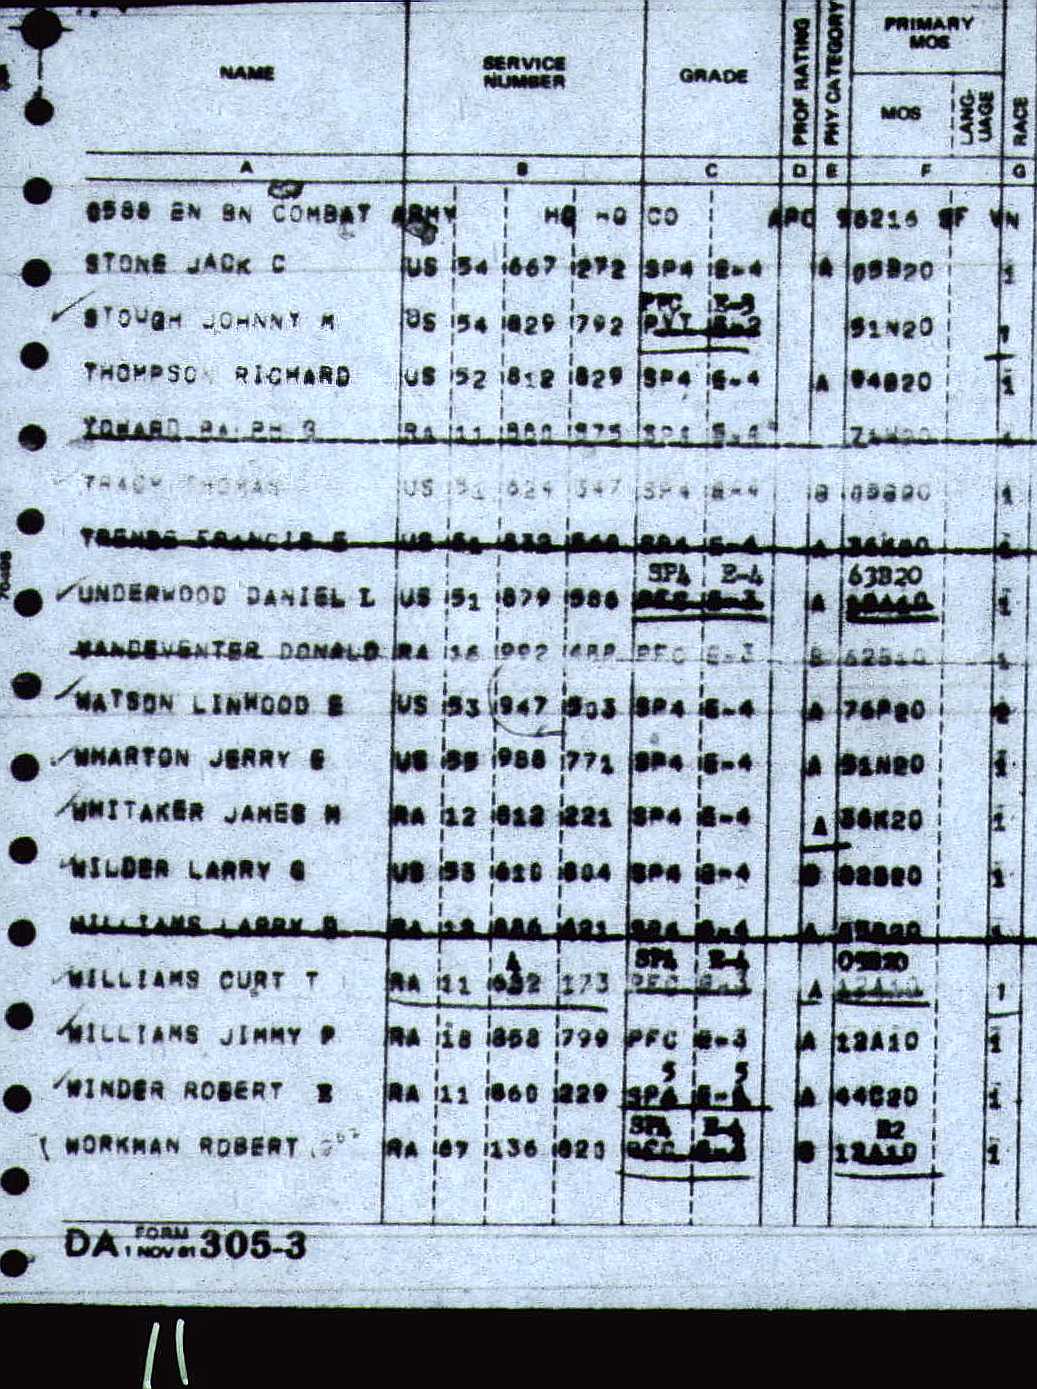 NAME SERVICE NUMBER GRADE PROF RATING PHY CATEGORY PRIMARY MOS MOS LANG-UAGE RACE
A B C D E F G
0588 EN BN COMBAT ARMY HQ HQ CO APO 96216 SF VN
STONE JACK C US 54 667 272 SP4 E-4 A 05B20 1
PFC E-3
STOUGH JOHNNY M US 54 829 792 PVT E-2 51N20 1
THOMPSON RICHARD US 52 812 829 SP4 E-4 A 94B20 1
RA 11 SP4 E-4
TRACY THOMAS US 51 624 347 SP4 E-4 B 1
FRANCIS E US E-4 A 36K20
SP4 E-4 63B20
UNDERWOOD DANIEL L US 51 879 586 PFC E-3 A 12A10 1
VANDEVENTER DONALD RA 16 992 PFC E-3 B 62B10 1
WATSON LINWOOD E US 53 947 503 SP4 E-4 A 76P20 2
WHARTON JERRY E US 55 988 771 SP4 E-4 A 51N20 1
WHITAKER JAMES M RA 12 812 221 SP4 E-4 A 36K20 1
WILDER LARRY G US 53 610 804 SP4 E-4 B 62B20 1
WILLIAMS LARRY RA SP4 E-4 A 1
4 SP4 E-4 05B20
WILLIAMS CURT T RA 11 632 173 PFC E-3 A 12A10 1
WILLIAMS JIMMY P RA 18 858 799 PFC E-3 A 12A10 1
5 5
WINDER ROBERT E RA 11 860 229 SP4 E-4 A 44C20 1
SP4 E-4 B2
WORKMAN ROBERT RA 67 136 823 PFC E-3 B 12A10 1
DA FORM 1 NOV 61 305-3
11